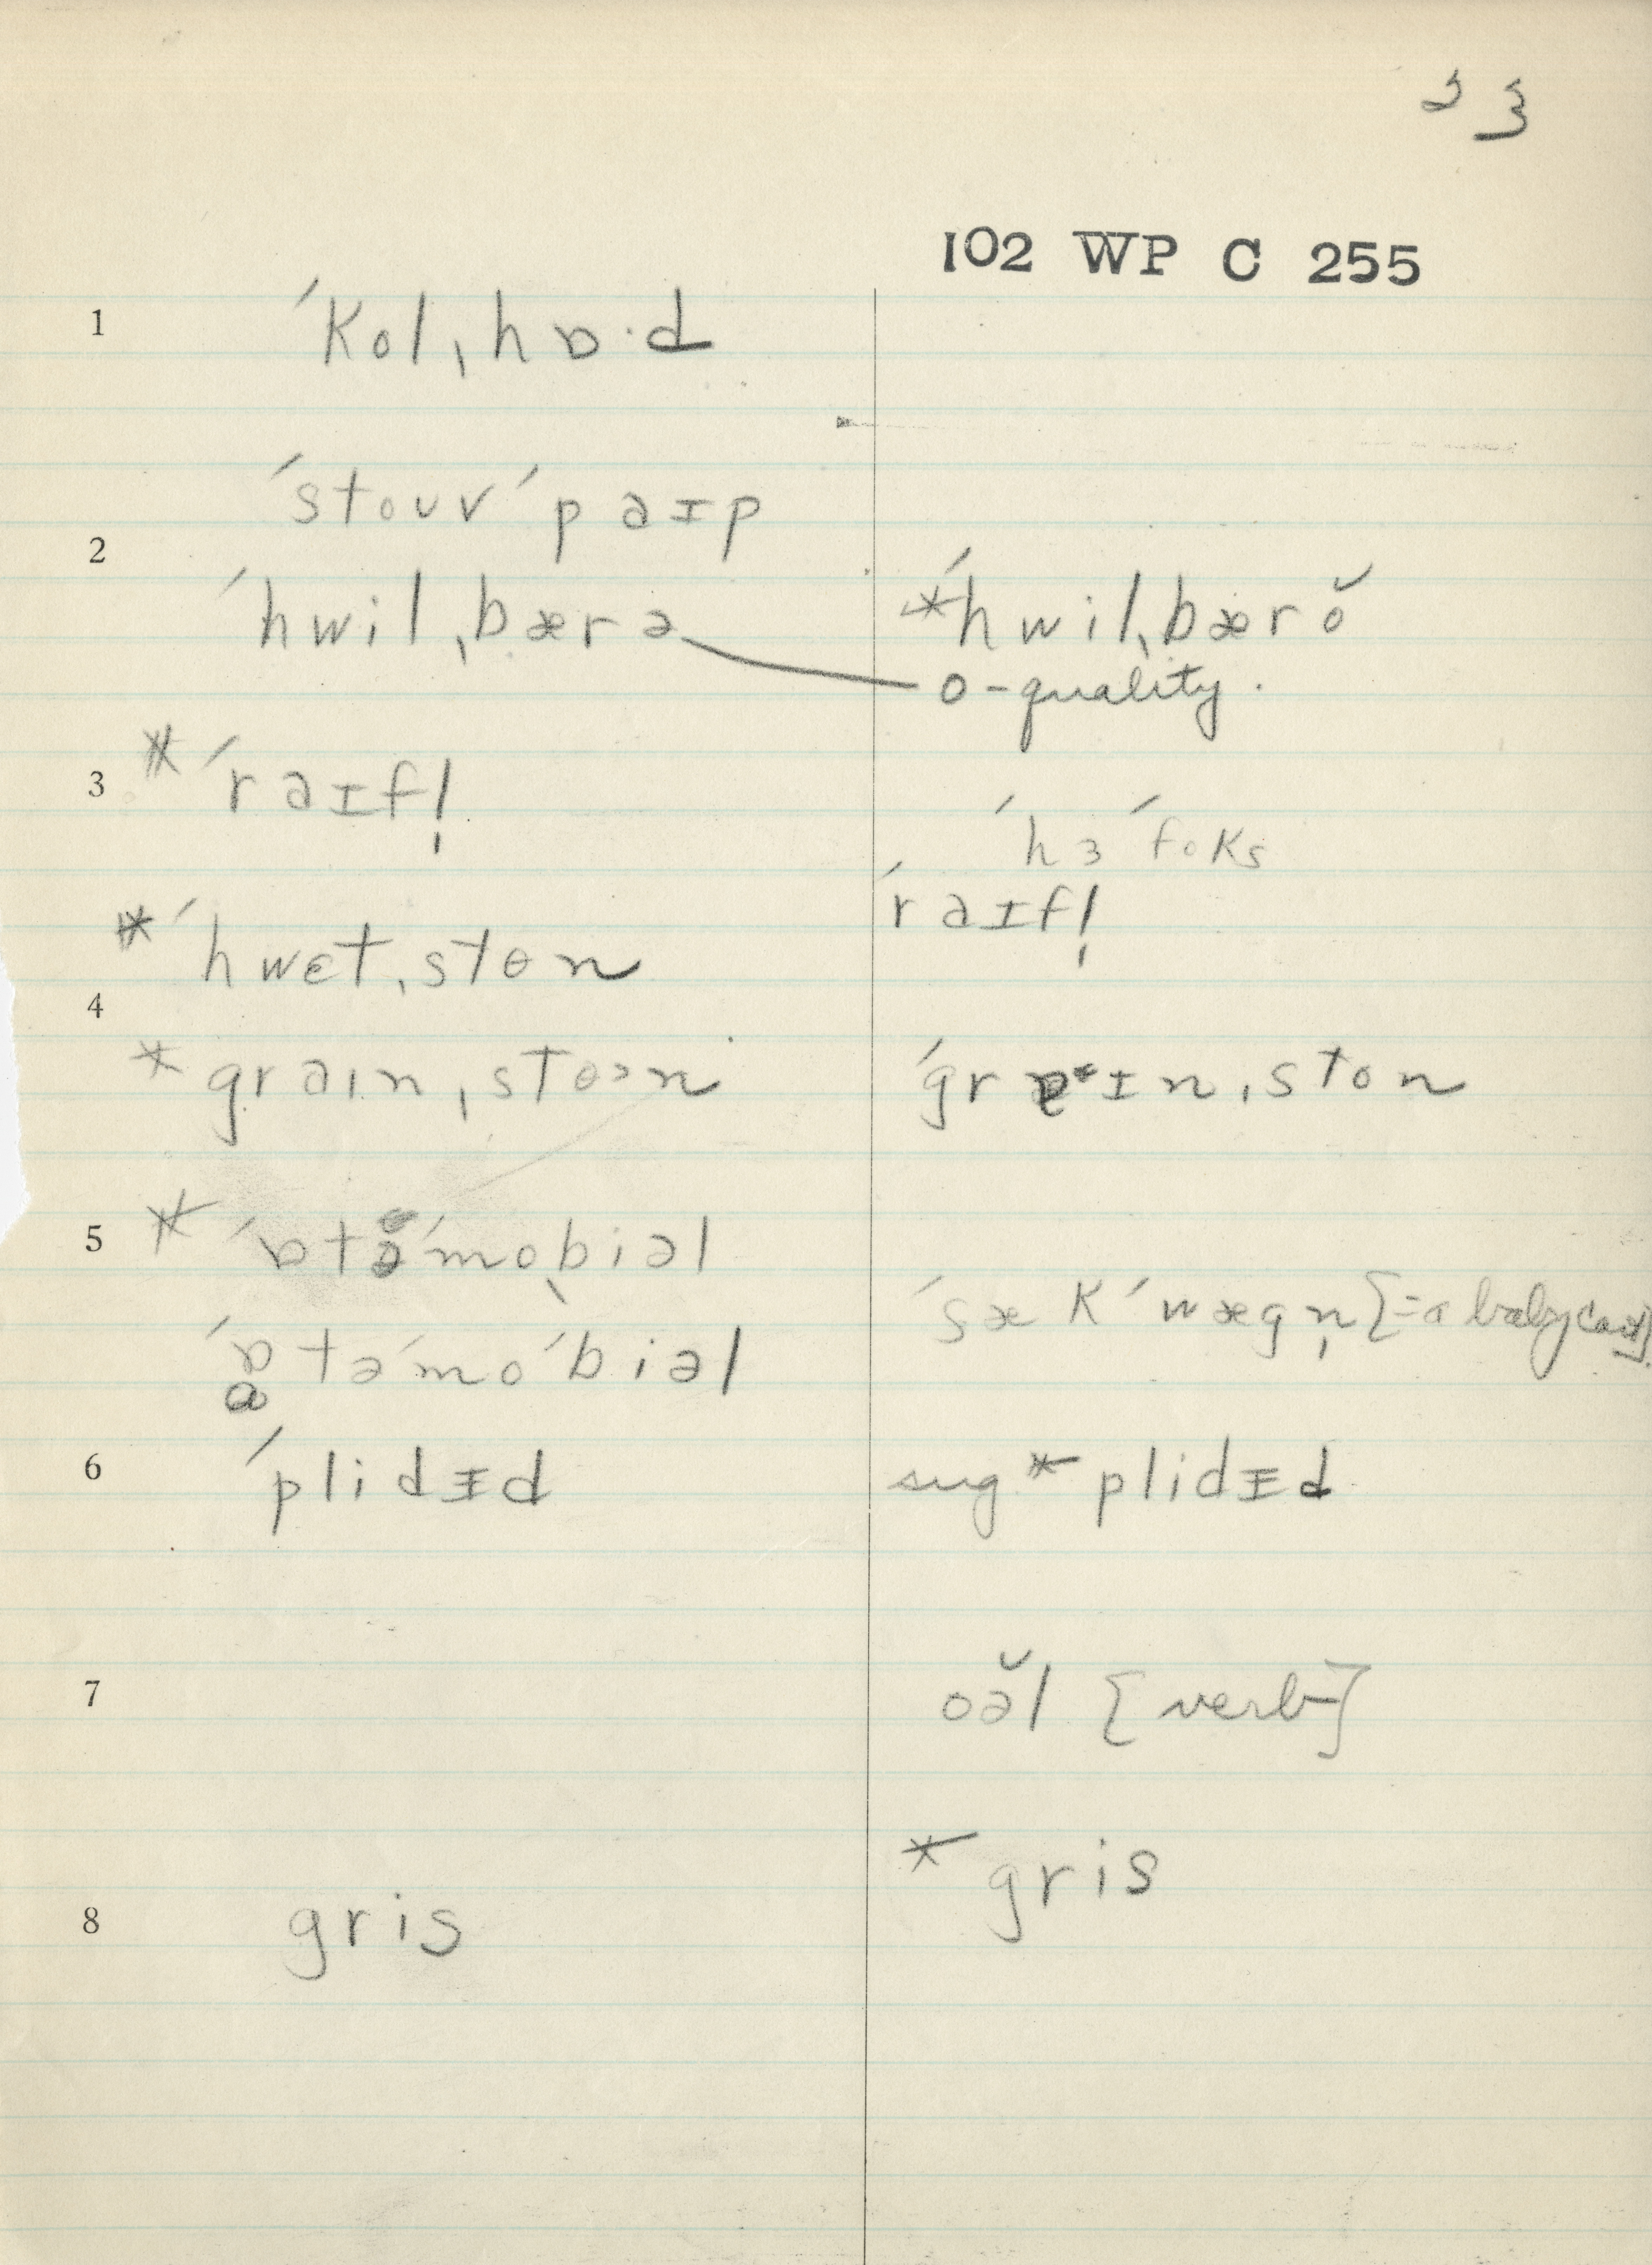 23
102 WP C 255
1 ˈkolˌhɒ·d
ˈstouvˈpaɪp
2
ˈhwilˌbærə *ˈhwilˌbærŏ
o-quality.
3 *ˈraɪfl̩
ˈhɜˈfoks
ˈraɪfl̩
*ˈhwɛtˌstɵn
4
*graınˌstoən ˈgrɐɪnˌston
5 *ˈɒtəˈmoˌbiəl
ˈsækˈwægn̩ [=a baby cart]
ˈɒtəˈmoˈbiəl
ɑ
6 ˈplidɪd sug* plidɪd
7 oə̆l [verb]
* gris
8 gris